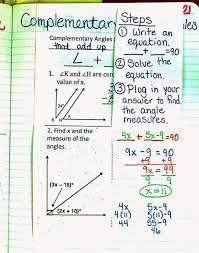 21
Complementar
iles
Complementary Angles
that add up
∠ +
1. ∠K and ∠H are con
value of x.
34°
2. Find x and the
measure of the
angles.
(3x – 15)°
(2x + 10)°
Steps
① Write an
equation.
__+__=90
② Solve the
equation.
③ Plug in your
answer to find
the angle
measures.
4x + 5x-9=90
9x - 9 = 90
+9 +9
9x = 99
9 9
x = 11
4x 5x-9
4(11) 5(11)-9
44 55-9
46